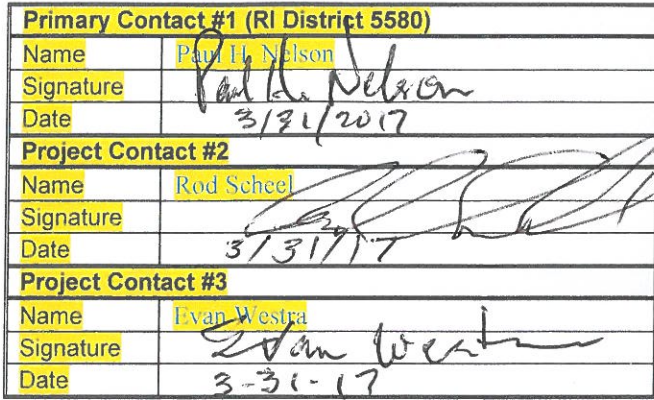 Primary Contact #1 (RI District 5580)
Name Paul H. Nelson
Signature Paul H. Nelson
Date 3/31/2017
Project Contact #2
Name Rod Scheel
Signature
Date 3/31/17
Project Contact #3
Name Evan Westra
Signature Evan Westra
Date 3-31-17